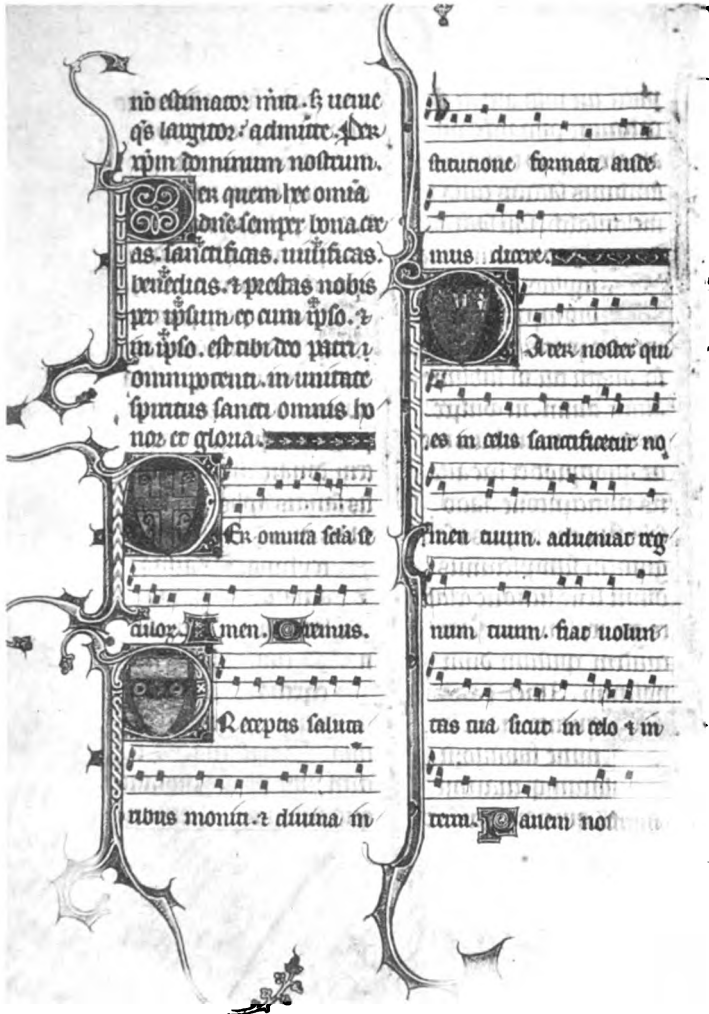 nõ estimator mĩti. sꝫ uenie
q̃s largitor: admitte. Per
xp̃m dominum nostrum.
Per quem hec omĩa
dñe semper bona cre
as. sanctificas. uiuificas.
benedicis. ⁊ prestas nobis
per ipsum et cum ipso. ⁊
in ipso. est tibi deo patri ⁊
omnipotenti. in unitate
spiritus sancti omnis ho
nor et gloria.
Per omnia scl̃a se
culor. Amen. Oremus.
Preceptis saluta
ribus moniti. ⁊ diuina in
stitutione formati aude
mus dicere.
Pater noster qui
es in celis sanctificetur no
men tuum. adueniat reg
num tuum. fiat uolun
tas tua sicut in celo ⁊ in
terra. Panem nos